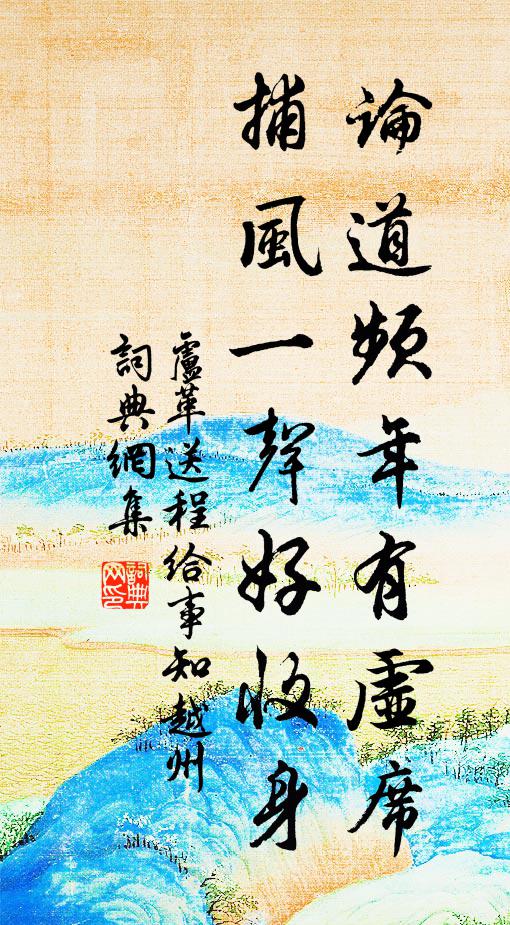 論道頻年有虛席
捕風一聲好收身
盧革送程給事知越州
詞典網集
詞典
网印